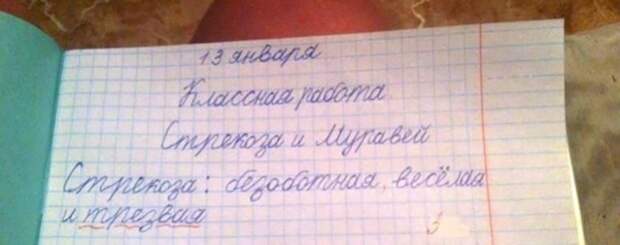 13 января
Классная работа
Стрекоза и Муравей
Стрекоза: безоботная, весёлая
и трезвая